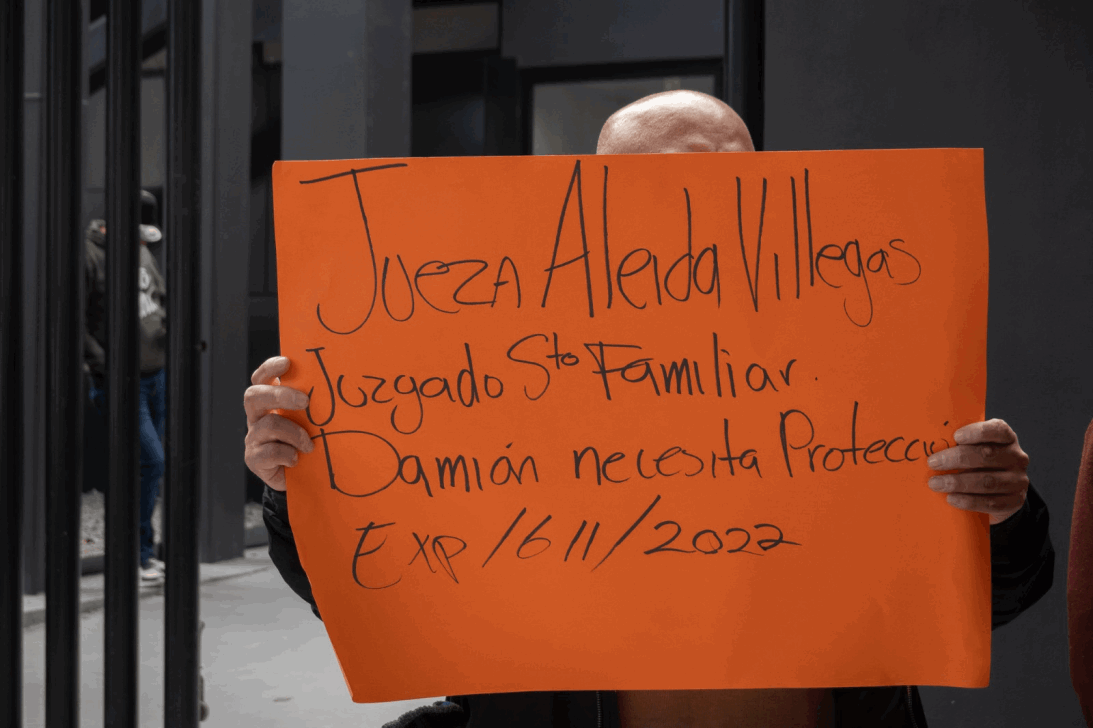 Jueza Aleida Villegas
Juzgado 5to Familiar.
Damián necesita Protecci
Exp/611/2022